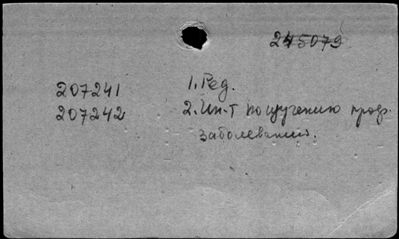 245079
207241 1. Ред.
207242 2. Ин-т по изучению проф.
заболеваний.